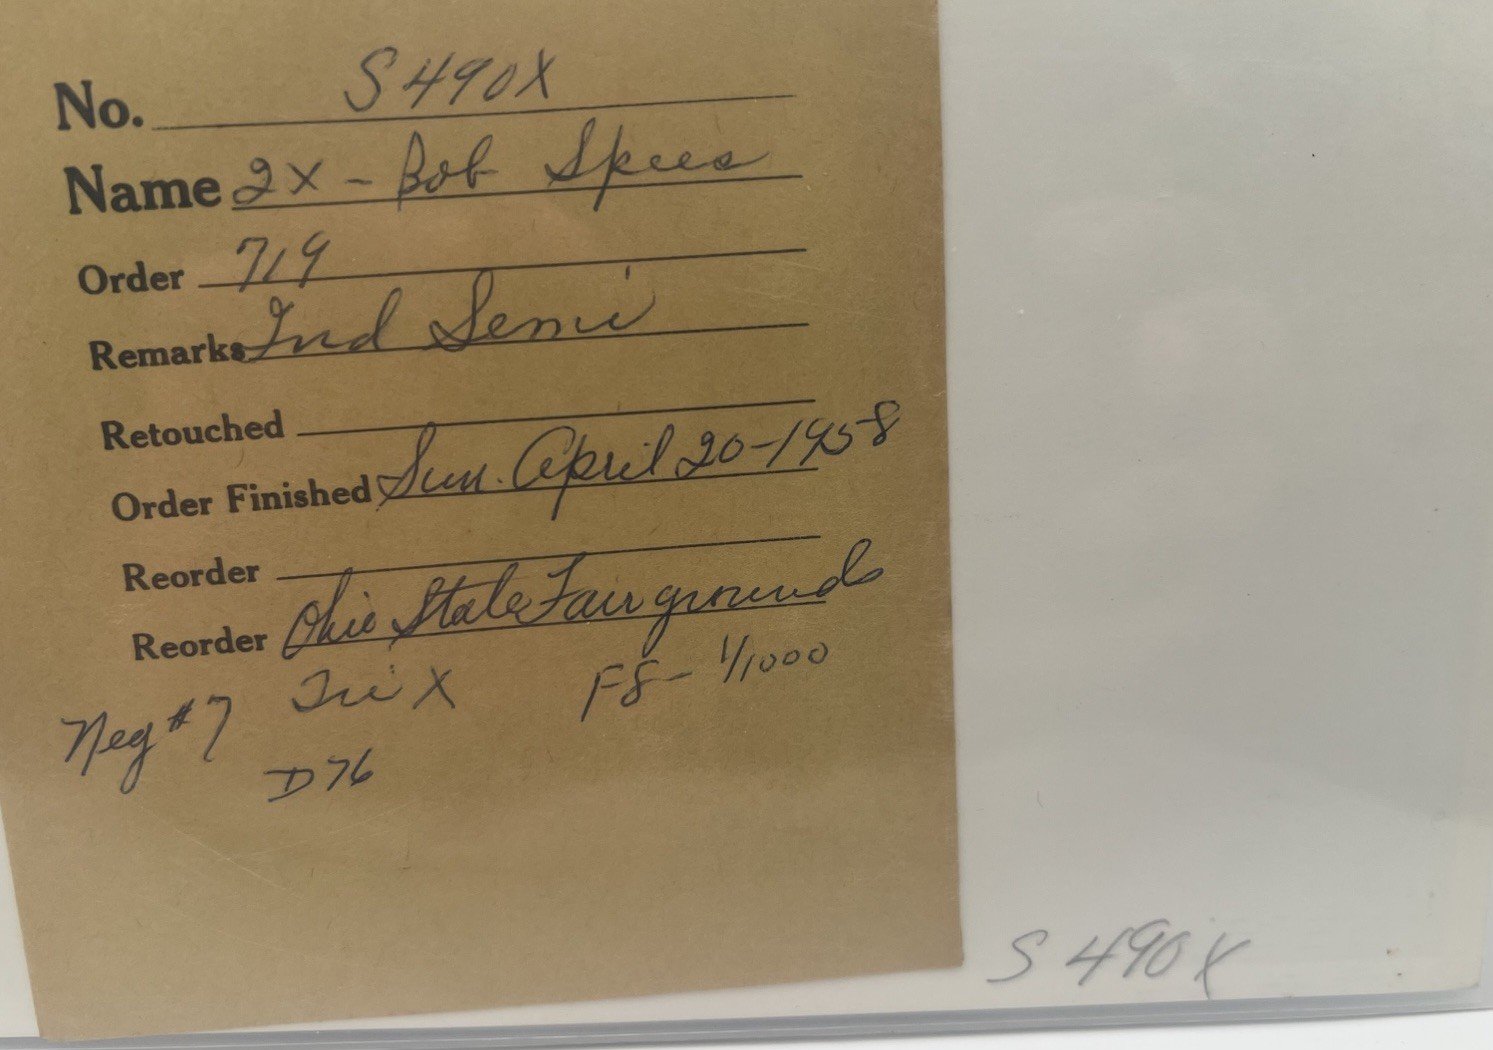 No. S490X
Name 2X - Bob Spees
Order 719
Remarks Ind Semi
Retouched
Order Finished Sun. April 20-1958
Reorder
Reorder Ohio State Fairgrounds
Neg #7 Tri X F8- 1/1000
D76
S490X